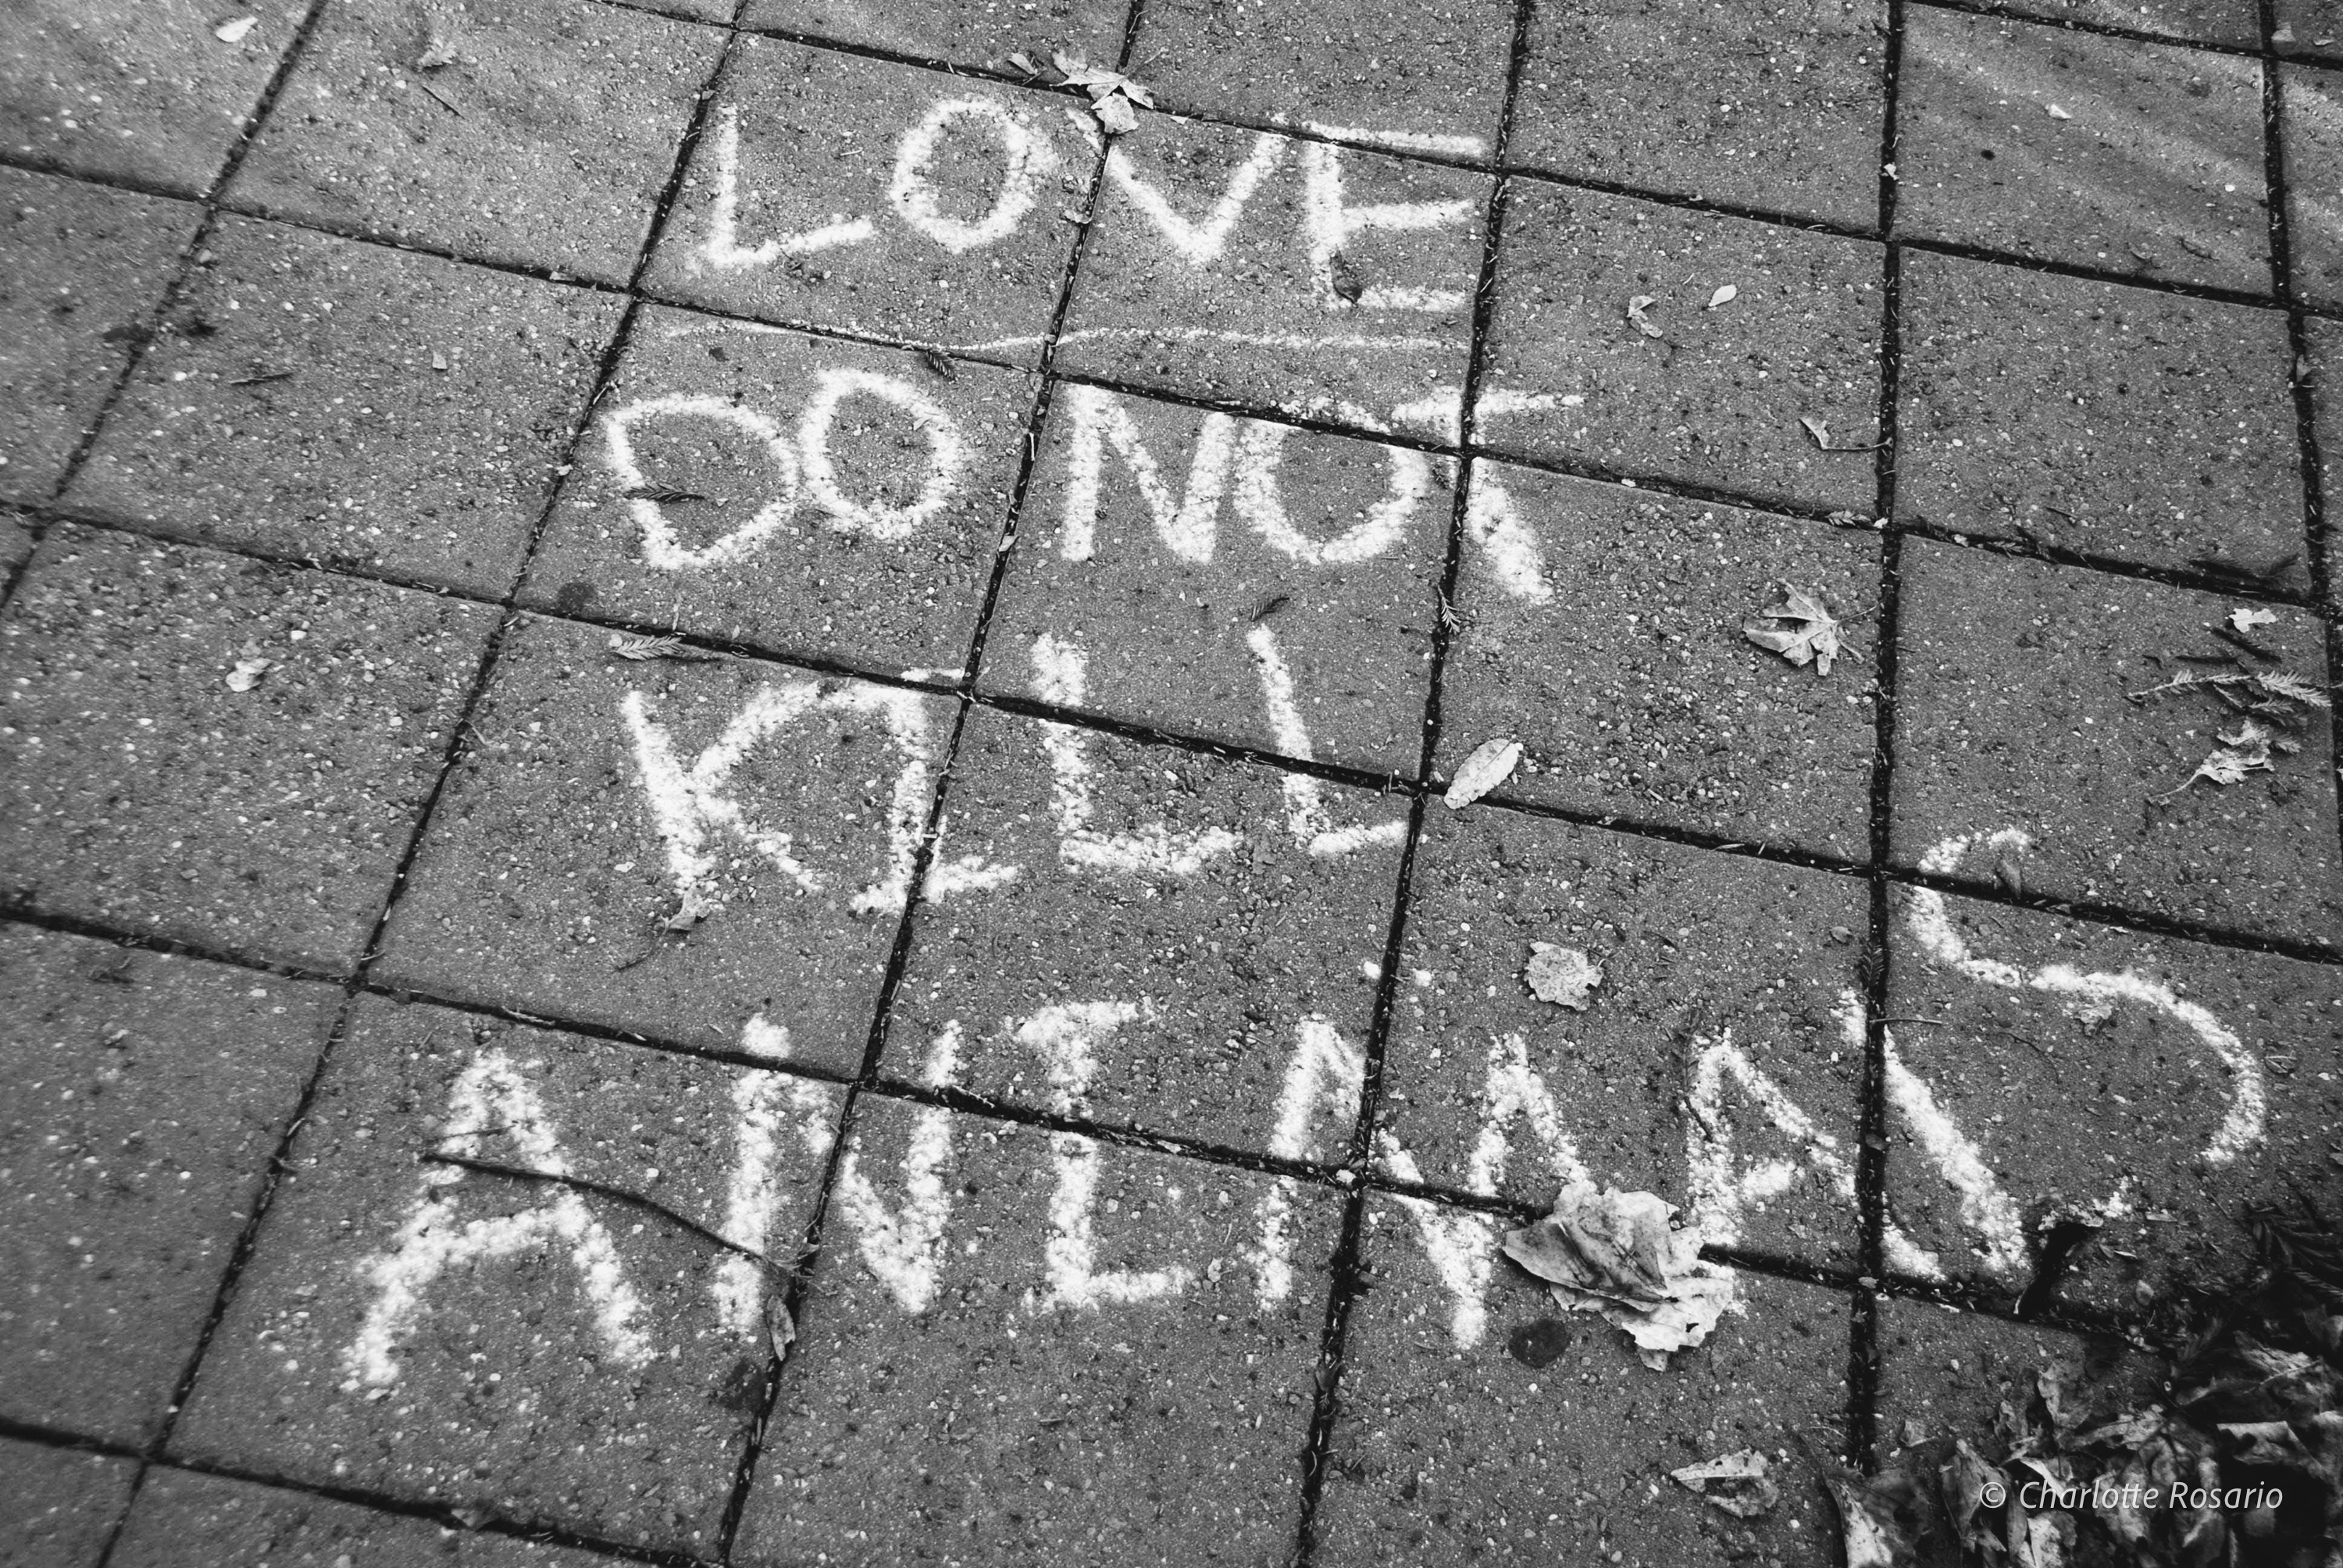 LOVE
DO NOT
KILL
ANIMALS
© Charlotte Rosario